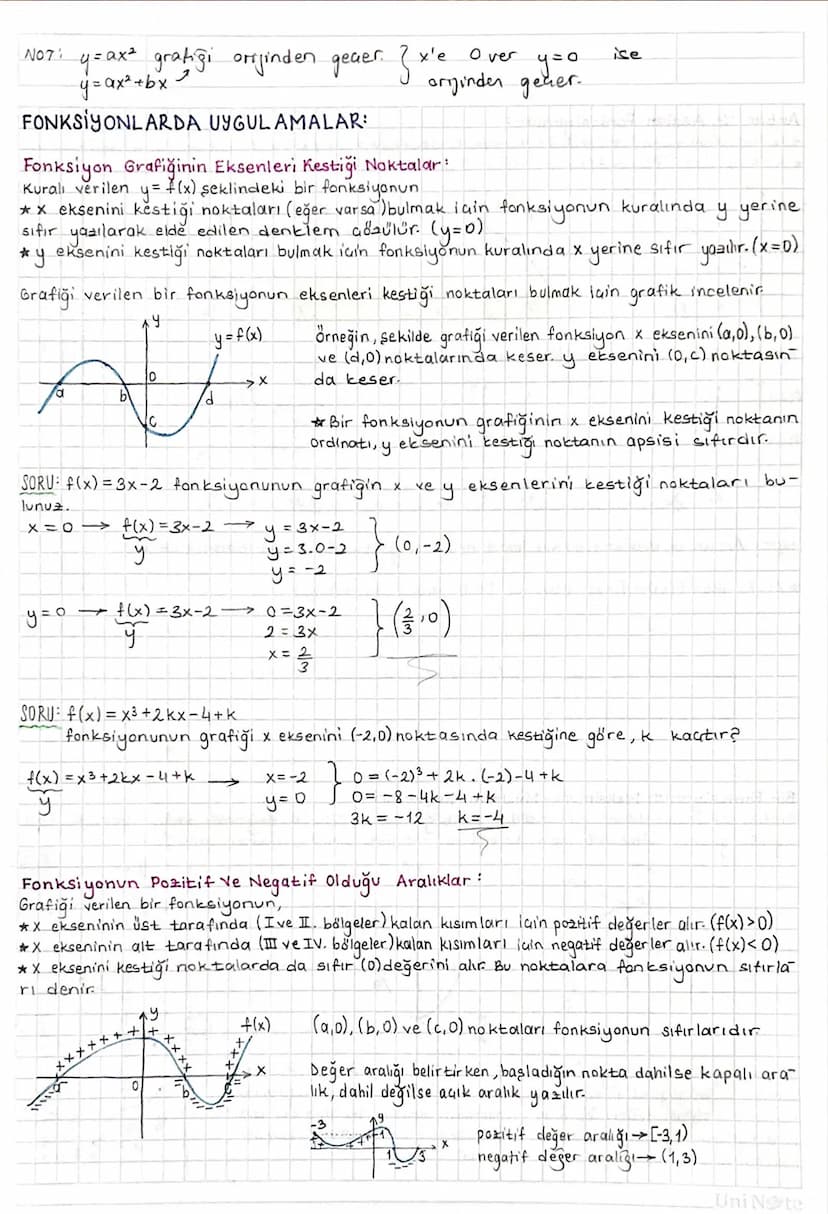 NOT: y=ax² grafiği orijinden geçer. } x'e 0 ver y=0 ise
y=ax²+bx orijinden geçer.
FONKSİYONLARDA UYGULAMALAR:
Fonksiyon Grafiğinin Eksenleri Kestiği Noktalar:
Kuralı verilen y=f(x) şeklindeki bir fonksiyonun
★ x eksenini kestiği noktaları (eğer varsa) bulmak için fonksiyonun kuralında y yerine
sıfır yazılarak elde edilen denklem çözülür. (y=0)
★ y eksenini kestiği noktaları bulmak için fonksiyonun kuralında x yerine sıfır yazılır. (x=0)
Grafiği verilen bir fonksiyonun eksenleri kestiği noktaları bulmak için grafik incelenir.
y
y=f(x)
0
x
a
b
d
c
Örneğin, şekilde grafiği verilen fonksiyon x eksenini (a,0), (b,0)
ve (d,0) noktalarında keser. y eksenini (0,c) noktasın-
da keser.
★ Bir fonksiyonun grafiğinin x eksenini kestiği noktanın
ordinatı, y eksenini kestiği noktanın apsisi sıfırdır.
SORU: f(x)=3x-2 fonksiyonunun grafiğin x ve y eksenlerini kestiği noktaları bu-
lunuz.
x=0 → f(x)=3x-2 → y=3x-2
y y=3.0-2 } (0,-2)
y=-2
y=0 → f(x)=3x-2 → 0=3x-2
y 2=3x } (2/3,0)
x=2/3
SORU: f(x)=x³+2kx-4+k
fonksiyonunun grafiği x eksenini (-2,0) noktasında kestiğine göre, k kaçtır?
f(x)=x³+2kx-4+k → x=-2 } 0=(-2)³+2k.(-2)-4+k
y y=0 0=-8-4k-4+k
3k=-12 k=-4
Fonksiyonun Pozitif Ve Negatif Olduğu Aralıklar:
Grafiği verilen bir fonksiyonun,
★ x ekseninin üst tarafında (I ve II. bölgeler) kalan kısımları için pozitif değerler alır. (f(x)>0)
★ x ekseninin alt tarafında (III ve IV. bölgeler) kalan kısımları için negatif değerler alır. (f(x)<0)
★ x eksenini kestiği noktalarda da sıfır (0) değerini alır. Bu noktalara fonksiyonun sıfırla-
rı denir.
y
f(x)
x
a
0
b
c
(a,0), (b,0) ve (c,0) noktaları fonksiyonun sıfırlarıdır
Değer aralığı belirtirken, başladığın nokta dahilse kapalı ara-
lık, dahil değilse açık aralık yazılır.
-3
y
1
1
3
x
pozitif değer aralığı→[-3,1)
negatif değer aralığı→(1,3)
UniNote